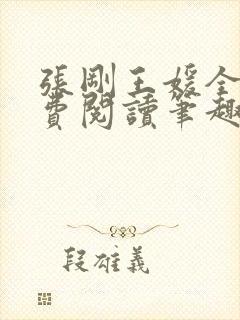 張剛王媛全
費閱讀筆趣
段雄義